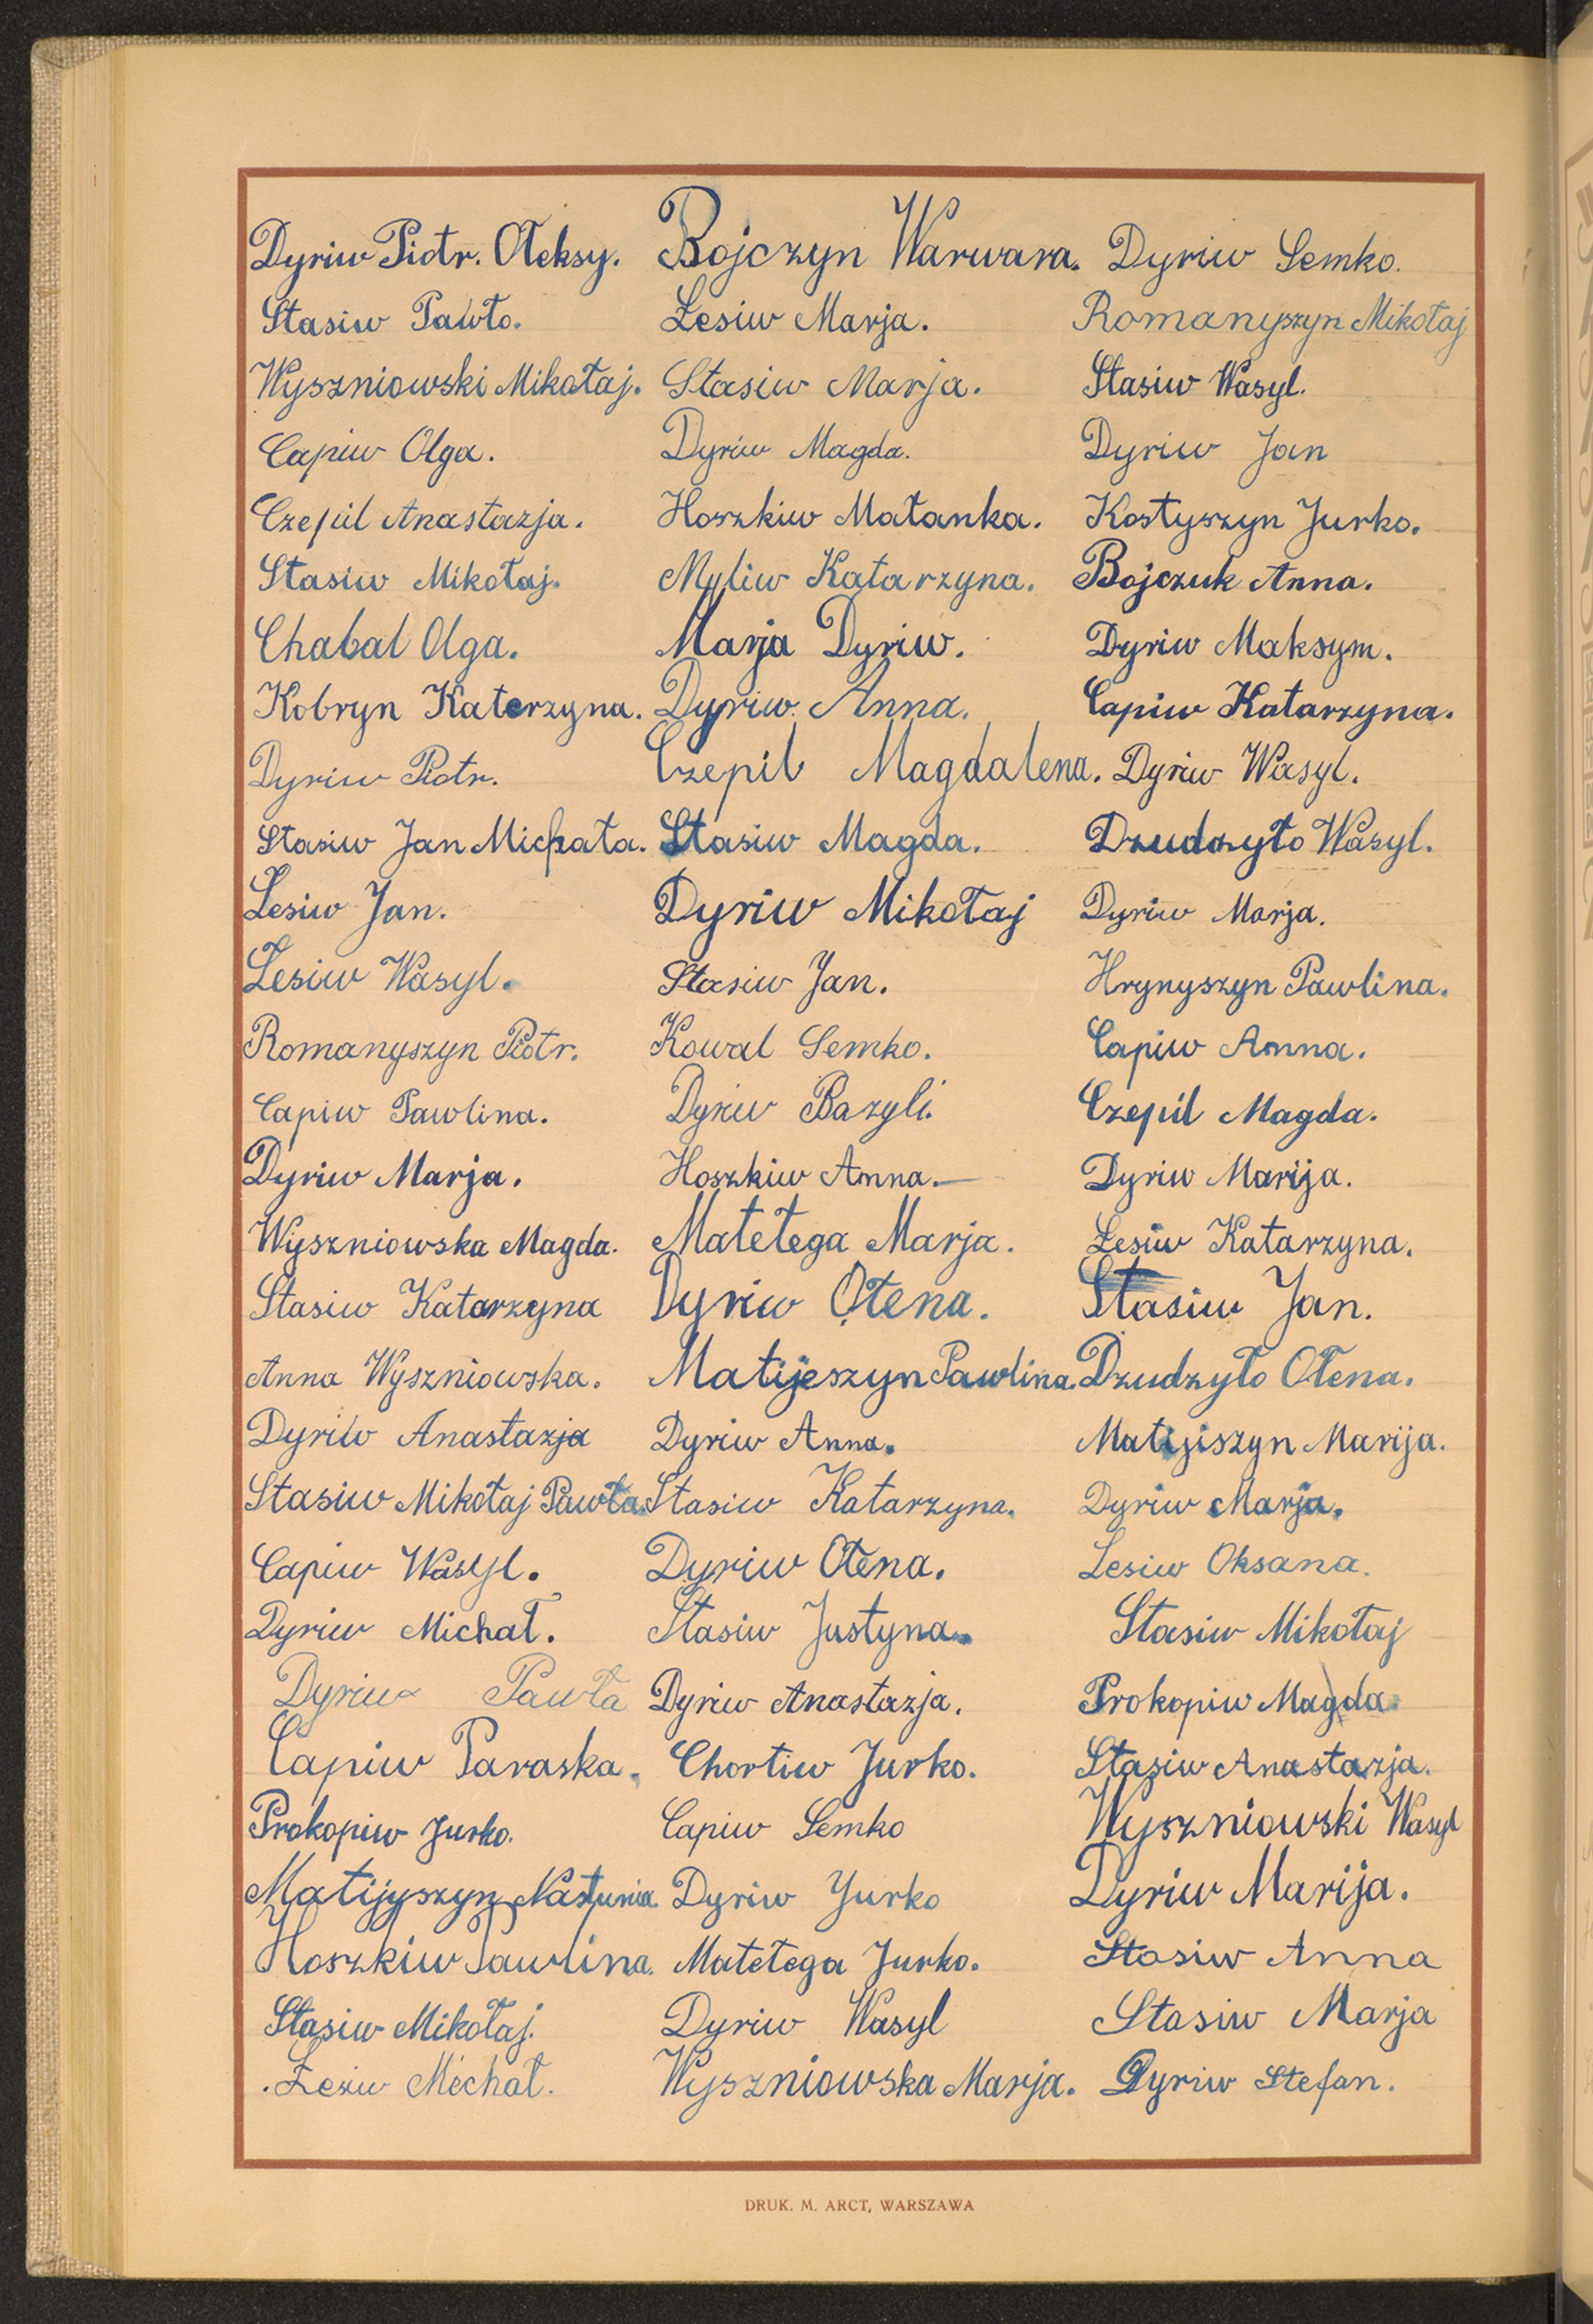 Dyriw Piotr. Ołeksy.
Stasiw Pawło.
Wyszniowski Mikołaj.
Capiw Olga.
Czepil Anastazja.
Stasiw Mikołaj.
Chabal Olga.
Kobryn Katerzyna.
Dyriw Piotr.
Stasiw Jan Michała.
Lesiw Jan.
Lesiw Wasyl.
Romanyszyn Piotr.
Capiw Pawlina.
Dyriw Marja.
Wyszniowska Magda.
Stasiw Katarzyna
Anna Wyszniowska.
Dyriw Anastazja
Stasiw Mikołaj Pawła.
Capiw Wasyl.
Dyriw Michał.
Dyriw Pawła
Capiw Paraska.
Prokopiw Jurko.
Matijyszyn Nastunia.
Hoszkiw Pawlina.
Stasiw Mikołaj.
Lesiw Michał.
Bojczyn Warwara.
Lesiw Marja.
Stasiw Marja.
Dyriw Magda.
Hoszkiw Małanka.
Myliw Katarzyna.
Marja Dyriw.
Dyriw Anna.
Czepil Magdalena.
Stasiw Magda.
Dyriw Mikołaj
Stasiw Jan.
Kowal Semko.
Dyriw Bazyli.
Hoszkiw Anna.
Matełega Marja.
Dyriw Ołena.
Matijeszyn Pawlina.
Dyriw Anna.
Stasiw Katarzyna.
Dyriw Ołena.
Stasiw Justyna.
Dyriw Anastazja.
Chortiw Jurko.
Capiw Semko
Dyriw Jurko
Matełega Jurko.
Dyriw Wasyl
Wyszniowska Marja.
Dyriw Semko.
Romanyszyn Mikołaj
Stasiw Wasyl.
Dyriw Jan
Kostyszyn Jurko.
Bojczuk Anna.
Dyriw Maksym.
Capiw Katarzyna.
Dyriw Wasyl.
Dzudzyło Wasyl.
Dyriw Marja.
Hrynyszyn Pawlina.
Capiw Anna.
Czepil Magda.
Dyriw Marija.
Lesiw Katarzyna.
Stasiw Jan.
Dzudzyło Ołena.
Matijiszyn Marija.
Dyriw Marja.
Lesiw Oksana.
Stasiw Mikołaj
Prokopiw Magda
Stasiw Anastazja.
Wyszniowski Wasyl
Dyriw Marija.
Stasiw Anna
Stasiw Marja
Dyriw Stefan.
DRUK. M. ARCT, WARSZAWA